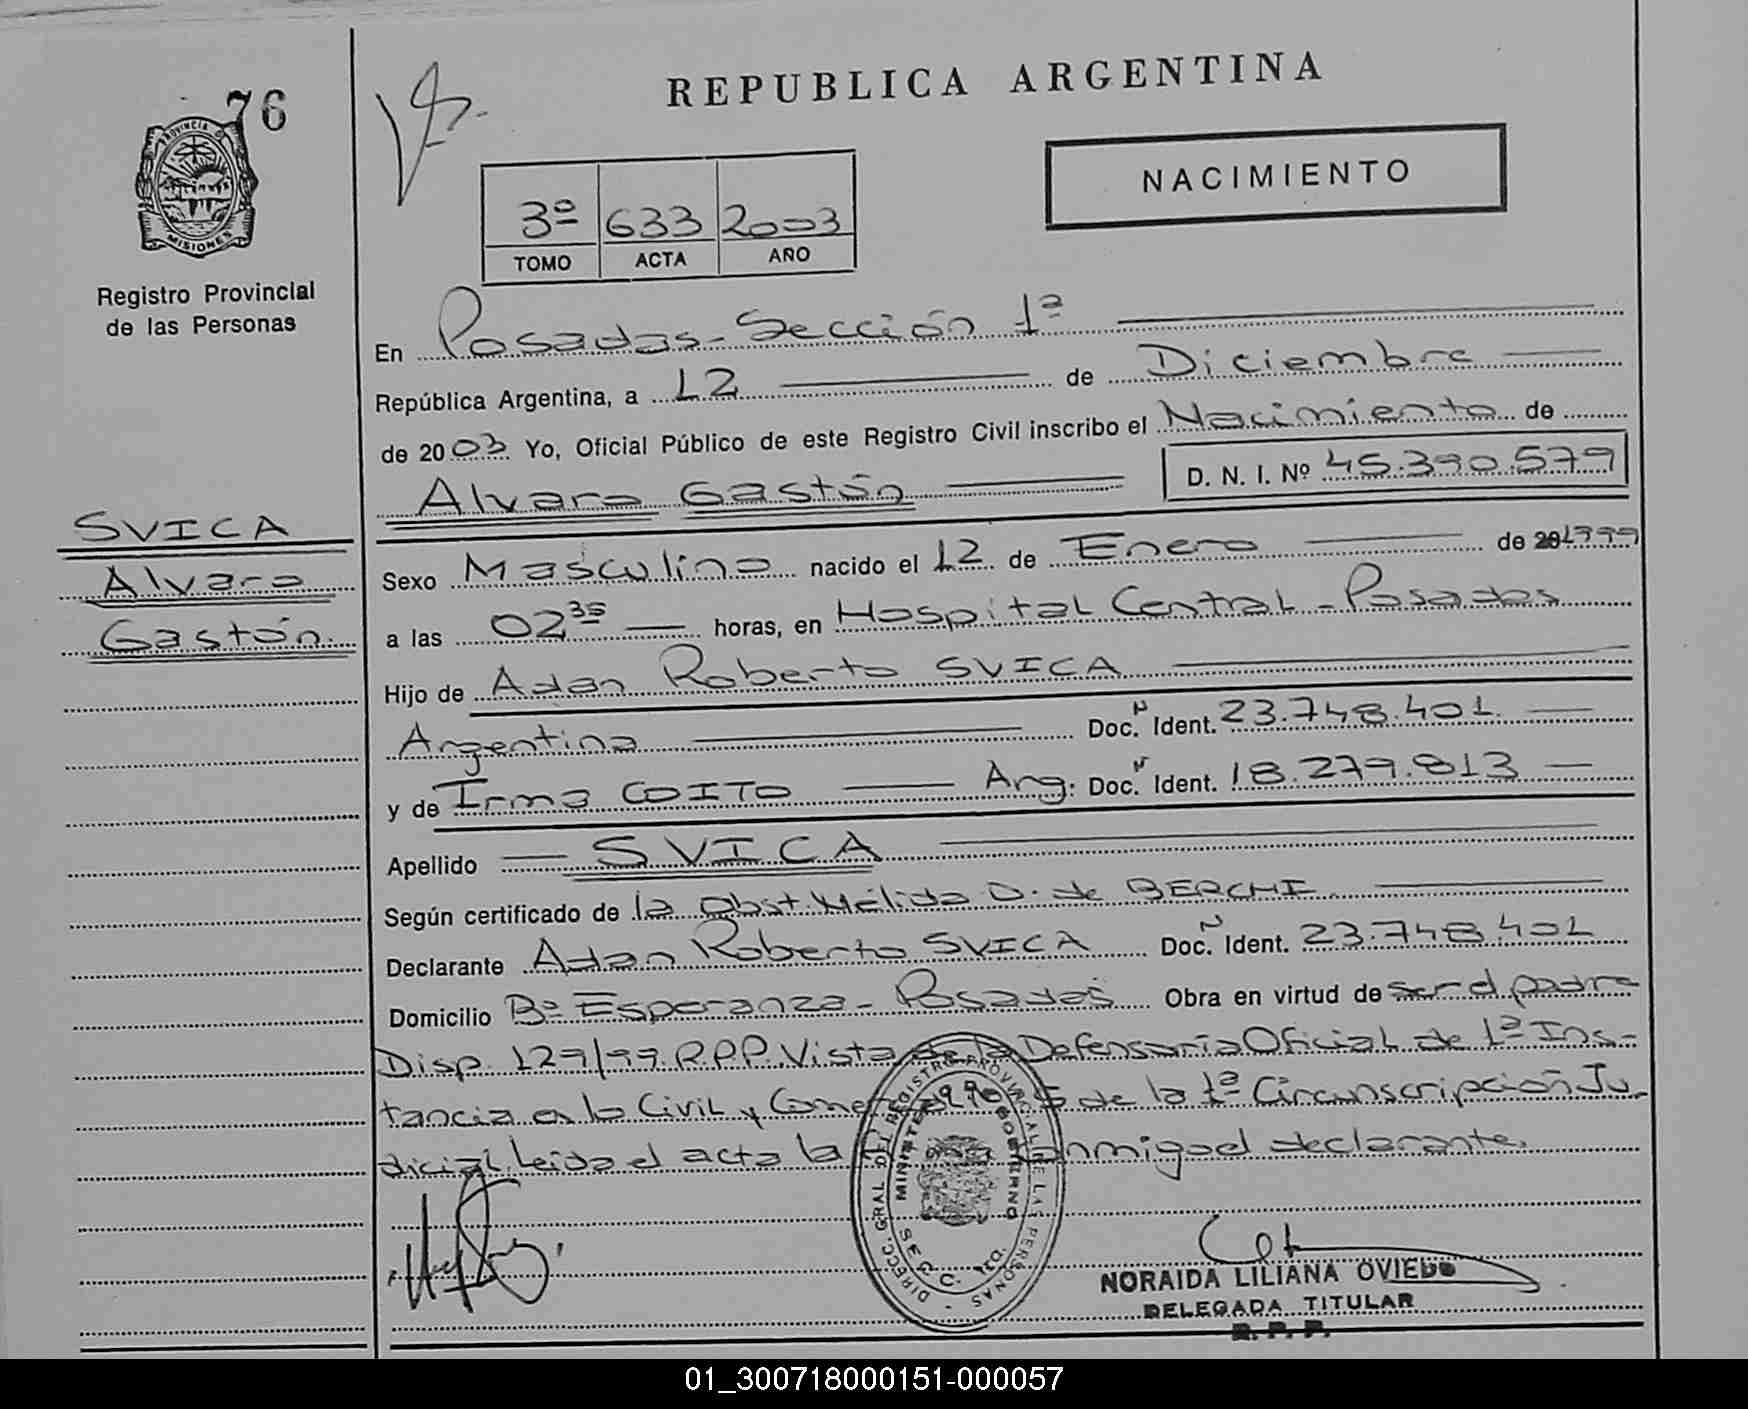 76
PROVINCIA DE
MISIONES
Registro Provincial
de las Personas
SVICA
Alvaro
Gastón.
REPUBLICA ARGENTINA
NACIMIENTO
3º 633 2003
TOMO ACTA AÑO
En Posadas-Sección 1ª
República Argentina, a 12 de Diciembre
de 2003 Yo, Oficial Público de este Registro Civil inscribo el Nacimiento de
Alvaro Gastón D. N. I. Nº 45.390.579
Sexo Masculino nacido el 12 de Enero de 1999
a las 02 35 horas, en Hospital Central - Posadas
Hijo de Adan Roberto SVICA
Argentina Doc. N Ident. 23.748.401
y de Irma COITO Arg: Doc. N Ident. 18.279.813
Apellido SVICA
Según certificado de la Obst. Mélida D. de BERCHI
Declarante Adan Roberto SVICA Doc. N Ident. 23.748.401
Domicilio Bº Esperanza - Posadas Obra en virtud de ser el padre
Disp. 129/99 R.P.P. Vista de la Defensoria Oficial de 1ª Ins-
tancia en lo Civil y de la 1ª Circunscripción Ju-
dicial. Leida el acta la conmigo el declarante.
DIREC. GRAL. DEL REGISTRO PROVINCIAL DE LAS PERSONAS
MINISTERIO GOBIERNO
NORAIDA LILIANA OVIEDO
DELEGADA TITULAR
R. P. P.
01_300718000151-000057